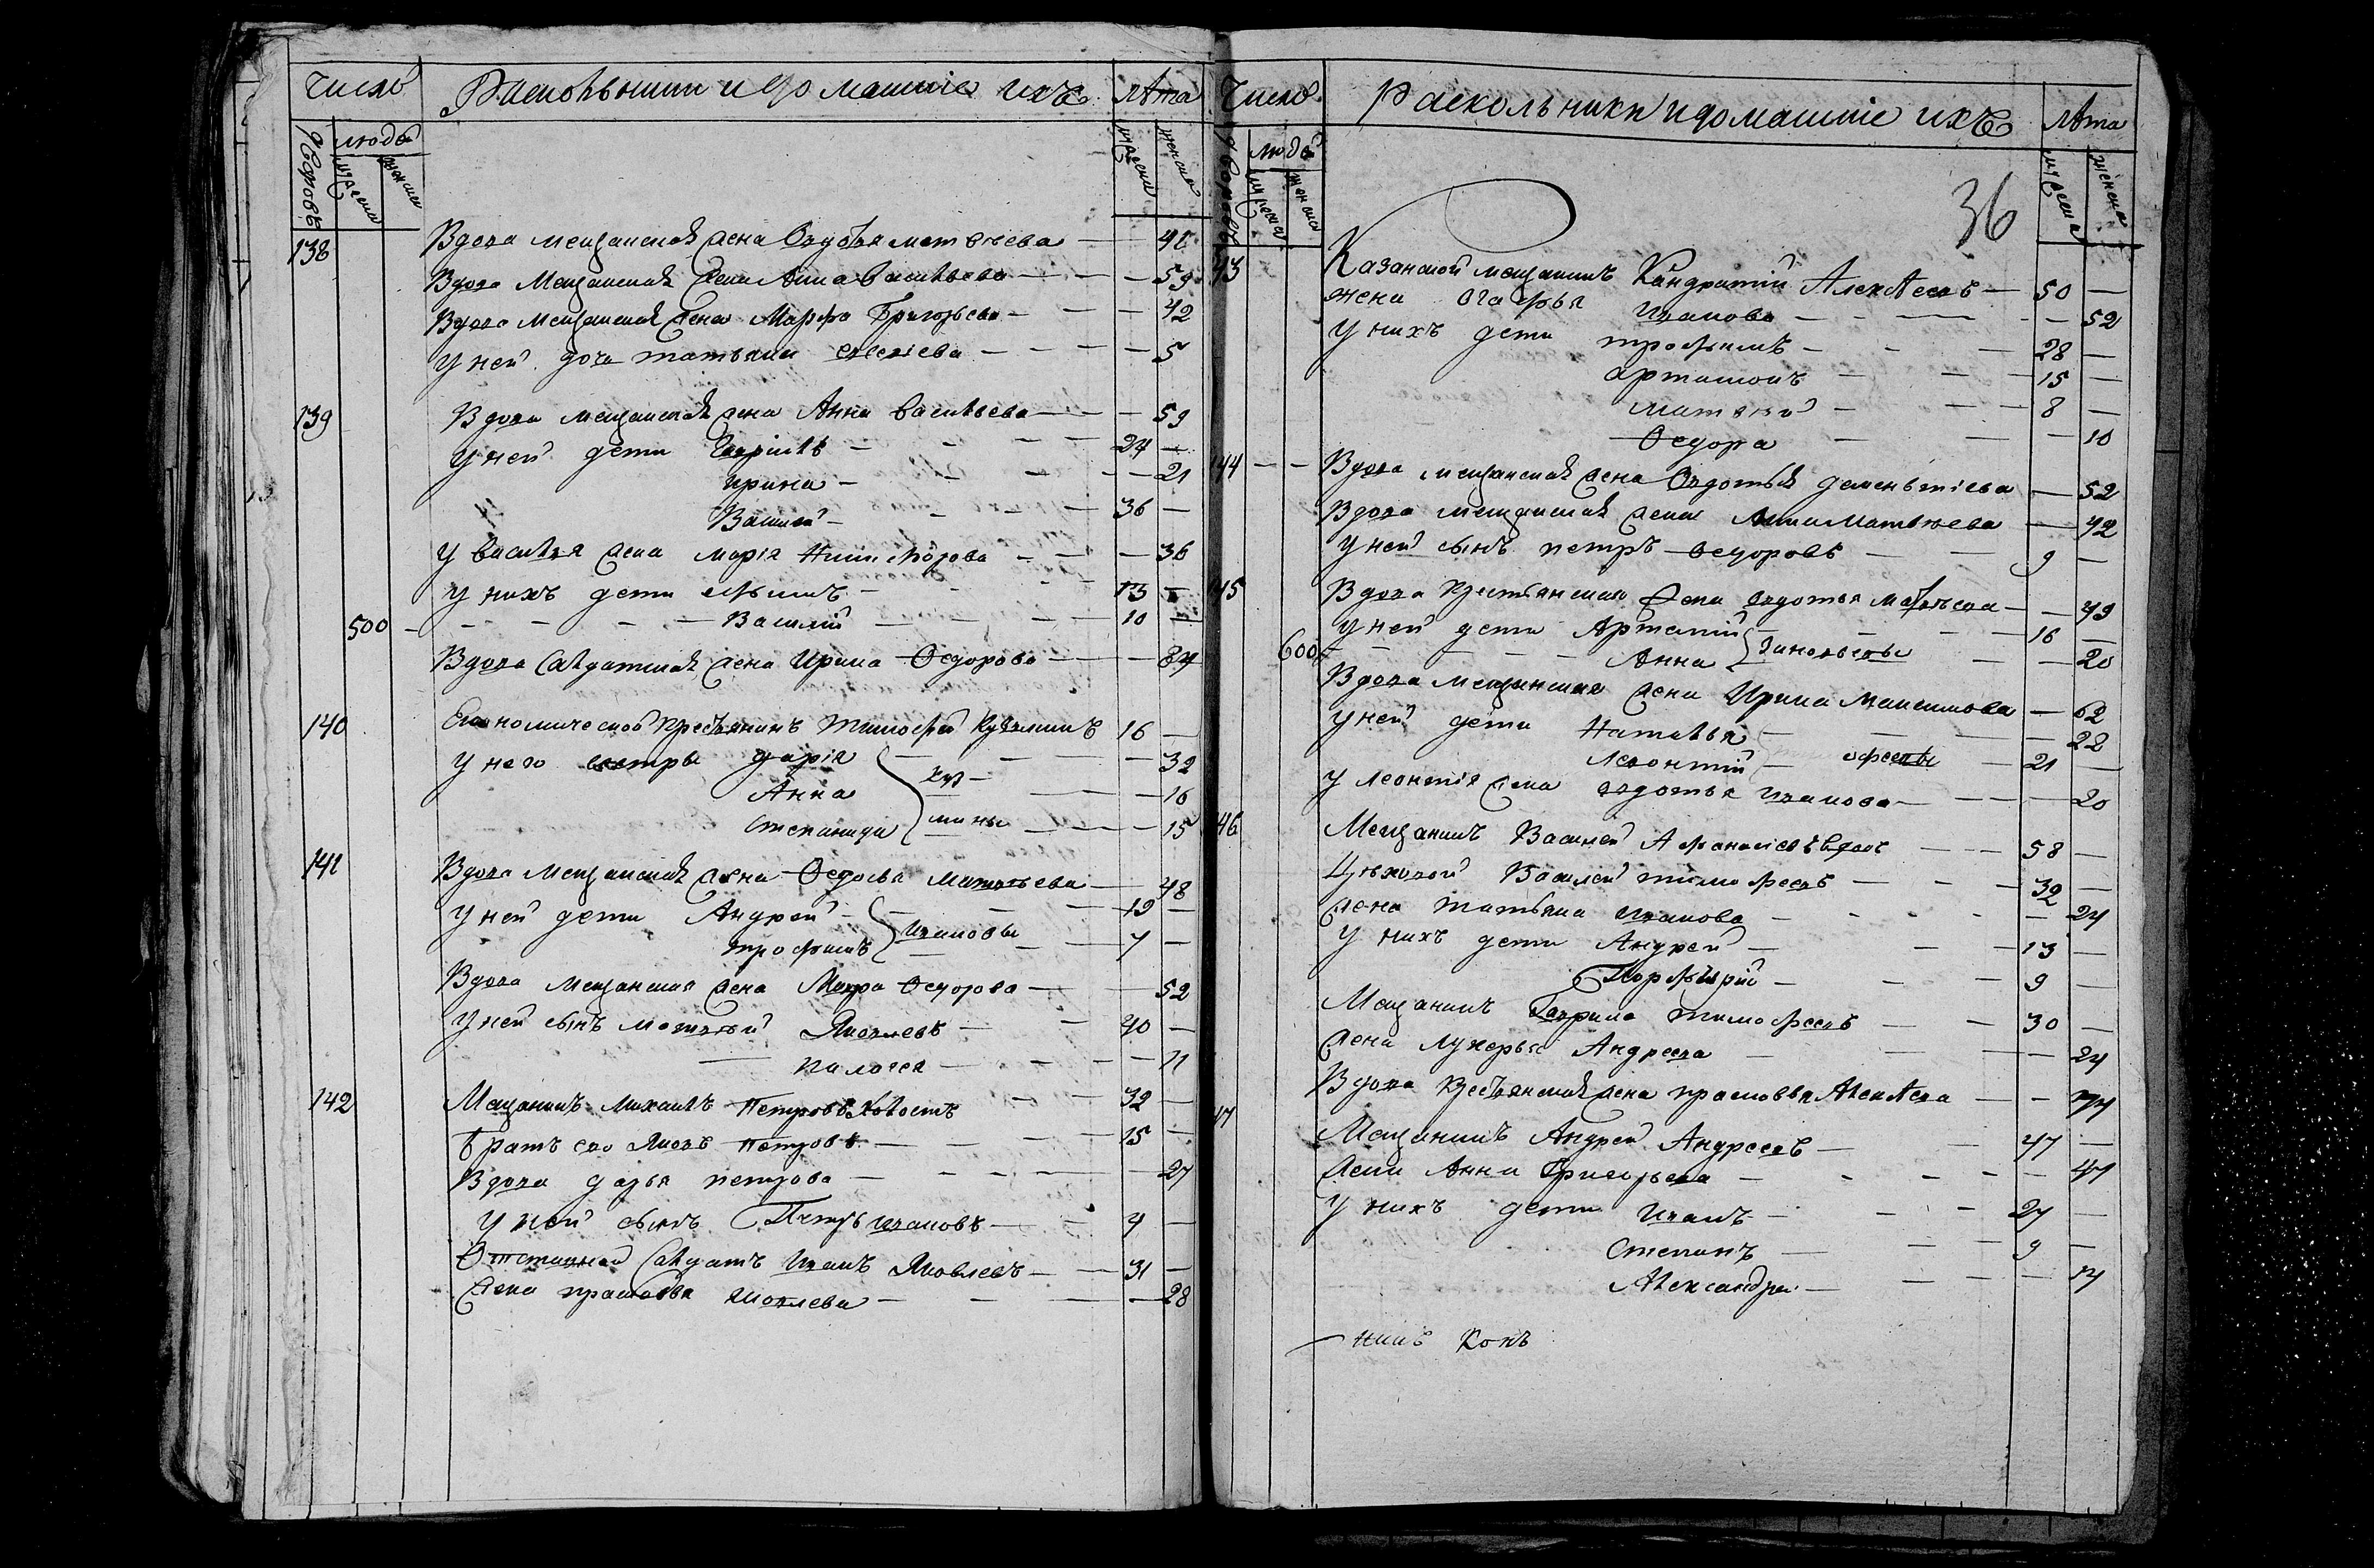 Число Раскольники и домашнїе ихъ лѣта
дворовъ людей мужска женска мужска женска
138 Вдова мещанская жена Овдотья матвѣева — — 42
Вдова Мещанская жена Анна Васильева — — — 59
Вдова мещанская жена Марфа Григорьева — — — 42
У ней дочь татьяна — — — — 5
139 Вдова мещанская жена Анна Васильева — — — 59
У ней дети Гаврилъ — — — — 24 —
ирина — — — — — 21
Василей — — — — 36 —
У василья жена марїя Никифорова — — — 36
У нихъ дети — — — — 13 —
500 — — — — — — Василїй — — — — 10 —
Вдова Салдатская жена Ирина Ѳедорова — — — 84
140 Економической крестьянинъ Тимофей Кузминъ 16 —
У него сестры дарїя — — — — 32
Анна Куз — — — — 16
Степанида мины — — — — 15
141 Вдова Мещанская жена Ѳедосья Матвѣева — — 48
У ней дети Андрей — — — — 19 —
трофимъ Ивановы — — 7 —
Вдова мещанская жена Мавра Ѳедорова — — 52
У ней сынъ матвей Яковлевъ — — 40 —
пелагея — — — — 11
142 Мещанинъ михаилъ Петровъ — — 32 —
братъ ево Яковъ Петровъ — — — — 15 —
Вдова дарья петрова — — — — — 27
У ней сынъ Петръ ивановъ — — 4 —
Отставной Салдатъ Иванъ Яковлевъ — — 31 —
Жена прасковья яковлева — — — — 28
Число Раскольники и домашнїе ихъ лѣта
дворовъ людей мужска женска мужска женска
36
43 Казанской мещанинъ Кандратїй Алексѣевъ — 50 —
жена огафья Иванова — — — — 52
У нихъ дети трофимъ — — — 28 —
артамонъ — — — 15 —
матвей — — — 8 —
Ѳедора — — — 10
44 — — Вдова мещанская жена Овдотья дементїева — 52
Вдова мещанская жена Анна Матвѣева — 42
У ней сынъ петръ Ѳедоровъ — — 9 —
45 Вдова Крестьянская Жена овдотья матвѣева — — 49
У ней дети Артемїй — — — 16 —
600 — — — — Анна Зиновьевы — — 20
Вдова мещанская жена Ирина максимова — 62
У ней дети Наталья — — — — 22
Леонтїй — — 21 —
У леонтїя жена овдотья иванова — — — 20
46 Мещанинъ Василей Афанасьевъ вдовъ — — 58 —
Цеховой Василей тимофеевъ — — — 32 —
Жена татьяна иванова — — — — 24
У нихъ дети Андрей — — — 13 —
Порфирїй — — — 9 —
Мещанинъ Гаврила тимофеевъ — — 30 —
Жена лукерья Андреева — — — 24
Вдова Крестьянская жена прасковья Алексѣева — — 74
47 Мещанинъ Андрей Андреевъ — — 47 —
Жена Анна Григорьева — — — — 47
У нихъ дети Иванъ — — — 27 —
Степанъ — — — 9 —
Александра — — — — 14